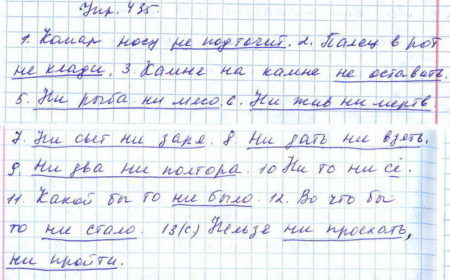 Упр. 435.
1. Комар носу не подточит. 2. Палец в рот
не клади. 3. Камня на камне не оставить.
5. Ни рыба ни мясо. 6. Ни жив ни мертв.
7. Ни свет ни заря. 8 Ни дать ни взять.
9. Ни два ни полтора. 10 Ни то ни сё.
11. Какой бы то ни было. 12. Во что бы
то ни стало. 13(с) Нельзя ни проехать,
ни пройти.